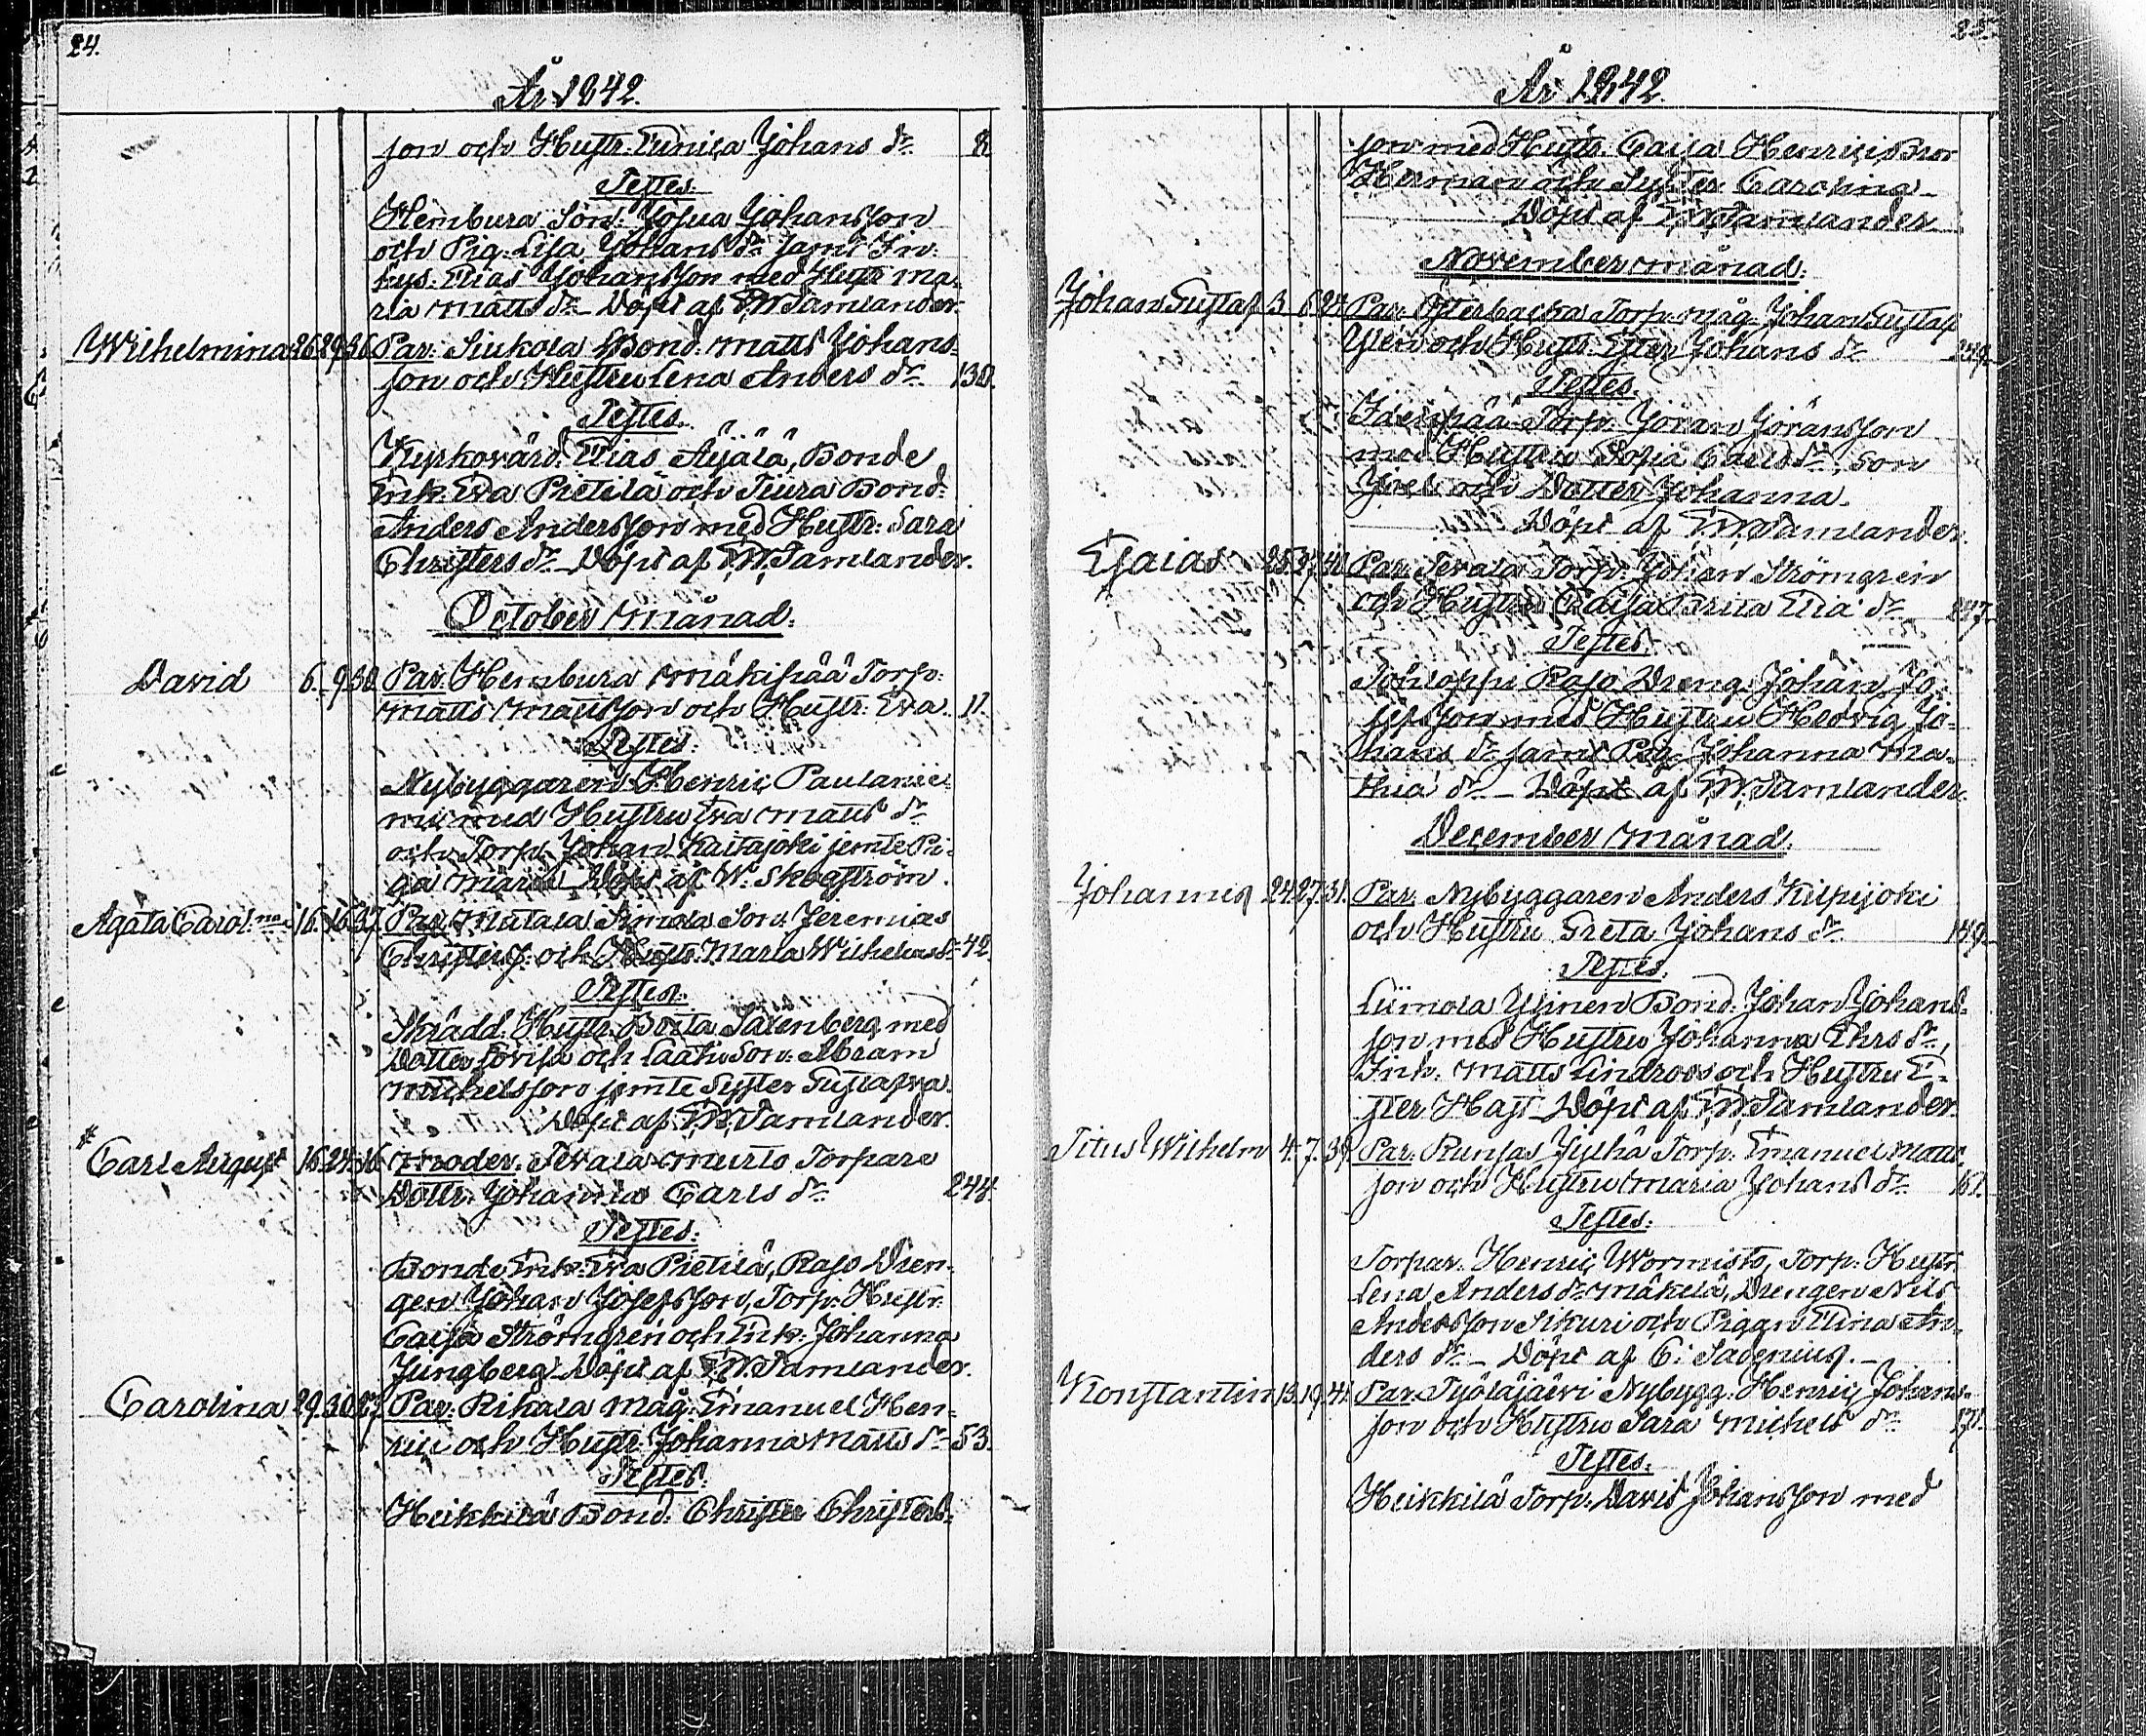 24.
År 1842.
son och Hustr. Eunica Johans dr 8.
Testes.
Hembura Son: Josua Johansson
och Pig. Lisa Johans dr samt In-
hys. Elias Johansson med Hustr Ma-
ria Matts dr Döpt af F.W. Tamlander.
Wilhelmina 26. 29. 36. Par: Siukola Bond. Matts Johans-
son och Hustru Lena Anders dr 130.
Testes.
Kyrkovärd. Elias Äijälä, Bonde
Enk. Eva Pietilä och Tiura Bond.
Anders Andersson med Hustr: Sara
Christers dr Döpt af F.W. Tamlander.
October Månad.
David 6. 9. 30. Par. Hembura Mäkipää Torp.
Matts Mattsson och Hustr: Eva 11.
Testes.
Nybyggaren Henric Paulanie-
mi med Hustru Eva Matts dr
och Torp. Johan Kaitajoki jemte Pi-
ga Maria Döpt af W. Skogström.
Agata Carol:na 16. 16. 37. Par. Matala Simola Son. Jeremias
Christers. och Hustr. Maria Wilhelms dr 42.
Testes.
Skrädd. Hustr. Brita Salenberg med
Dotter Lovisa och Laati Son. Abram
Michelsson jemte Syster Gustafva.
Döpt af F.W. Tamlander.
* Carl August 16. 24. 36. Moder. Tevala Murto Torpare
Dottr. Johanna Carls dr 244.
Testes.
Bonde Enk. Eva Pietilä, Rajo Dren-
gen Johan Josefsson, Torp. Hustr.
Caisa Strömgren och Enk. Johanna
Jungberg Döpt af F.W. Tamlander.
Carolina 29. 30. 27. Par: Rikala Måg. Emanuel Hen-
rici och Hustr. Johanna Matts dr 53.
Testes.
Heikkilä Bond. Christer Christers-
25.
År 1842.
son med Hustr. Caisa Henrici Bror
Herman och Syster Carolina
Döpt af F.W. Tamlander.
November månad.
Johan Gustaf 3. 6. Par. Österbacka Torp. måg. Johan Gustaf
och Hustr. Ester Johans dr 249.
Testes.
Torp. Jöran Jöransson
med Hustru Sofia Carls dr, Son
Joel och Dotter Johanna.
Döpt af F.W. Tamlander.
Esaias 25. 27. Par. Tevala Torp. Johan Strömgren
och Hustru Caisa Brita Elia dr 247.
Testes.
Rajo Dreng. Johan Jo-
sefsson med Hustru Hedvig Jo-
hans dr samt Pig. Johanna Ma-
thia dr Döpt af F.W. Tamlander.
December Månad.
Johannes 24. 27. 31. Par. Nybyggaren Anders Kilpijoki
och Hustru Greta Johans dr 149.
Testes.
Liimola Ylinen Bond. Johan Johans-
son med Hustru Johanna Ehrs dr,
Inh. Matts Lindroos och Hustru E-
ster Hast Döpt af F.W. Tamlander.
Titus Wilhelm 4. 7. 39. Par. Runsas Jylhä Torp. Emanuel Matts-
son och Hustru Maria Johans dr 161.
Testes.
Torpar. Henric Wormisto, Torp. Hustr.
Lena Anders dr Mäkelä, Drengen Nils
Andersson Sikuri och Pigan Elina An-
ders dr Döpt af C. Sadenius.
Konstantin 13. 19. 41. Par. Työläjärvi Nybygg. Henric Johans-
son och Hustru Sara Michels dr 171.
Testes.
Heikkilä Torp. David Johansson med